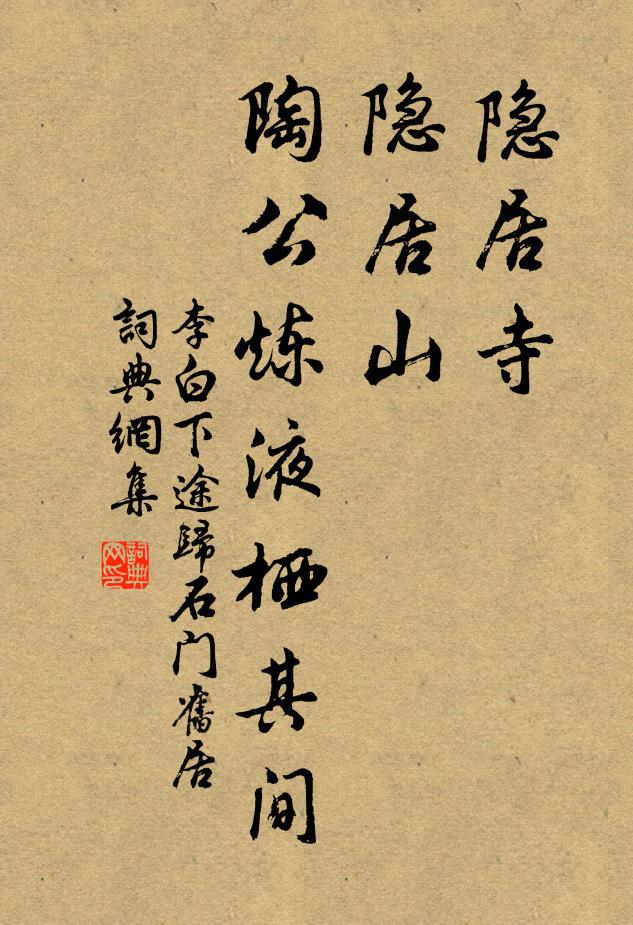 隐居寺
隐居山
陶公炼液栖其间
李白下途歸石门舊居
詞典網集
詞典网印